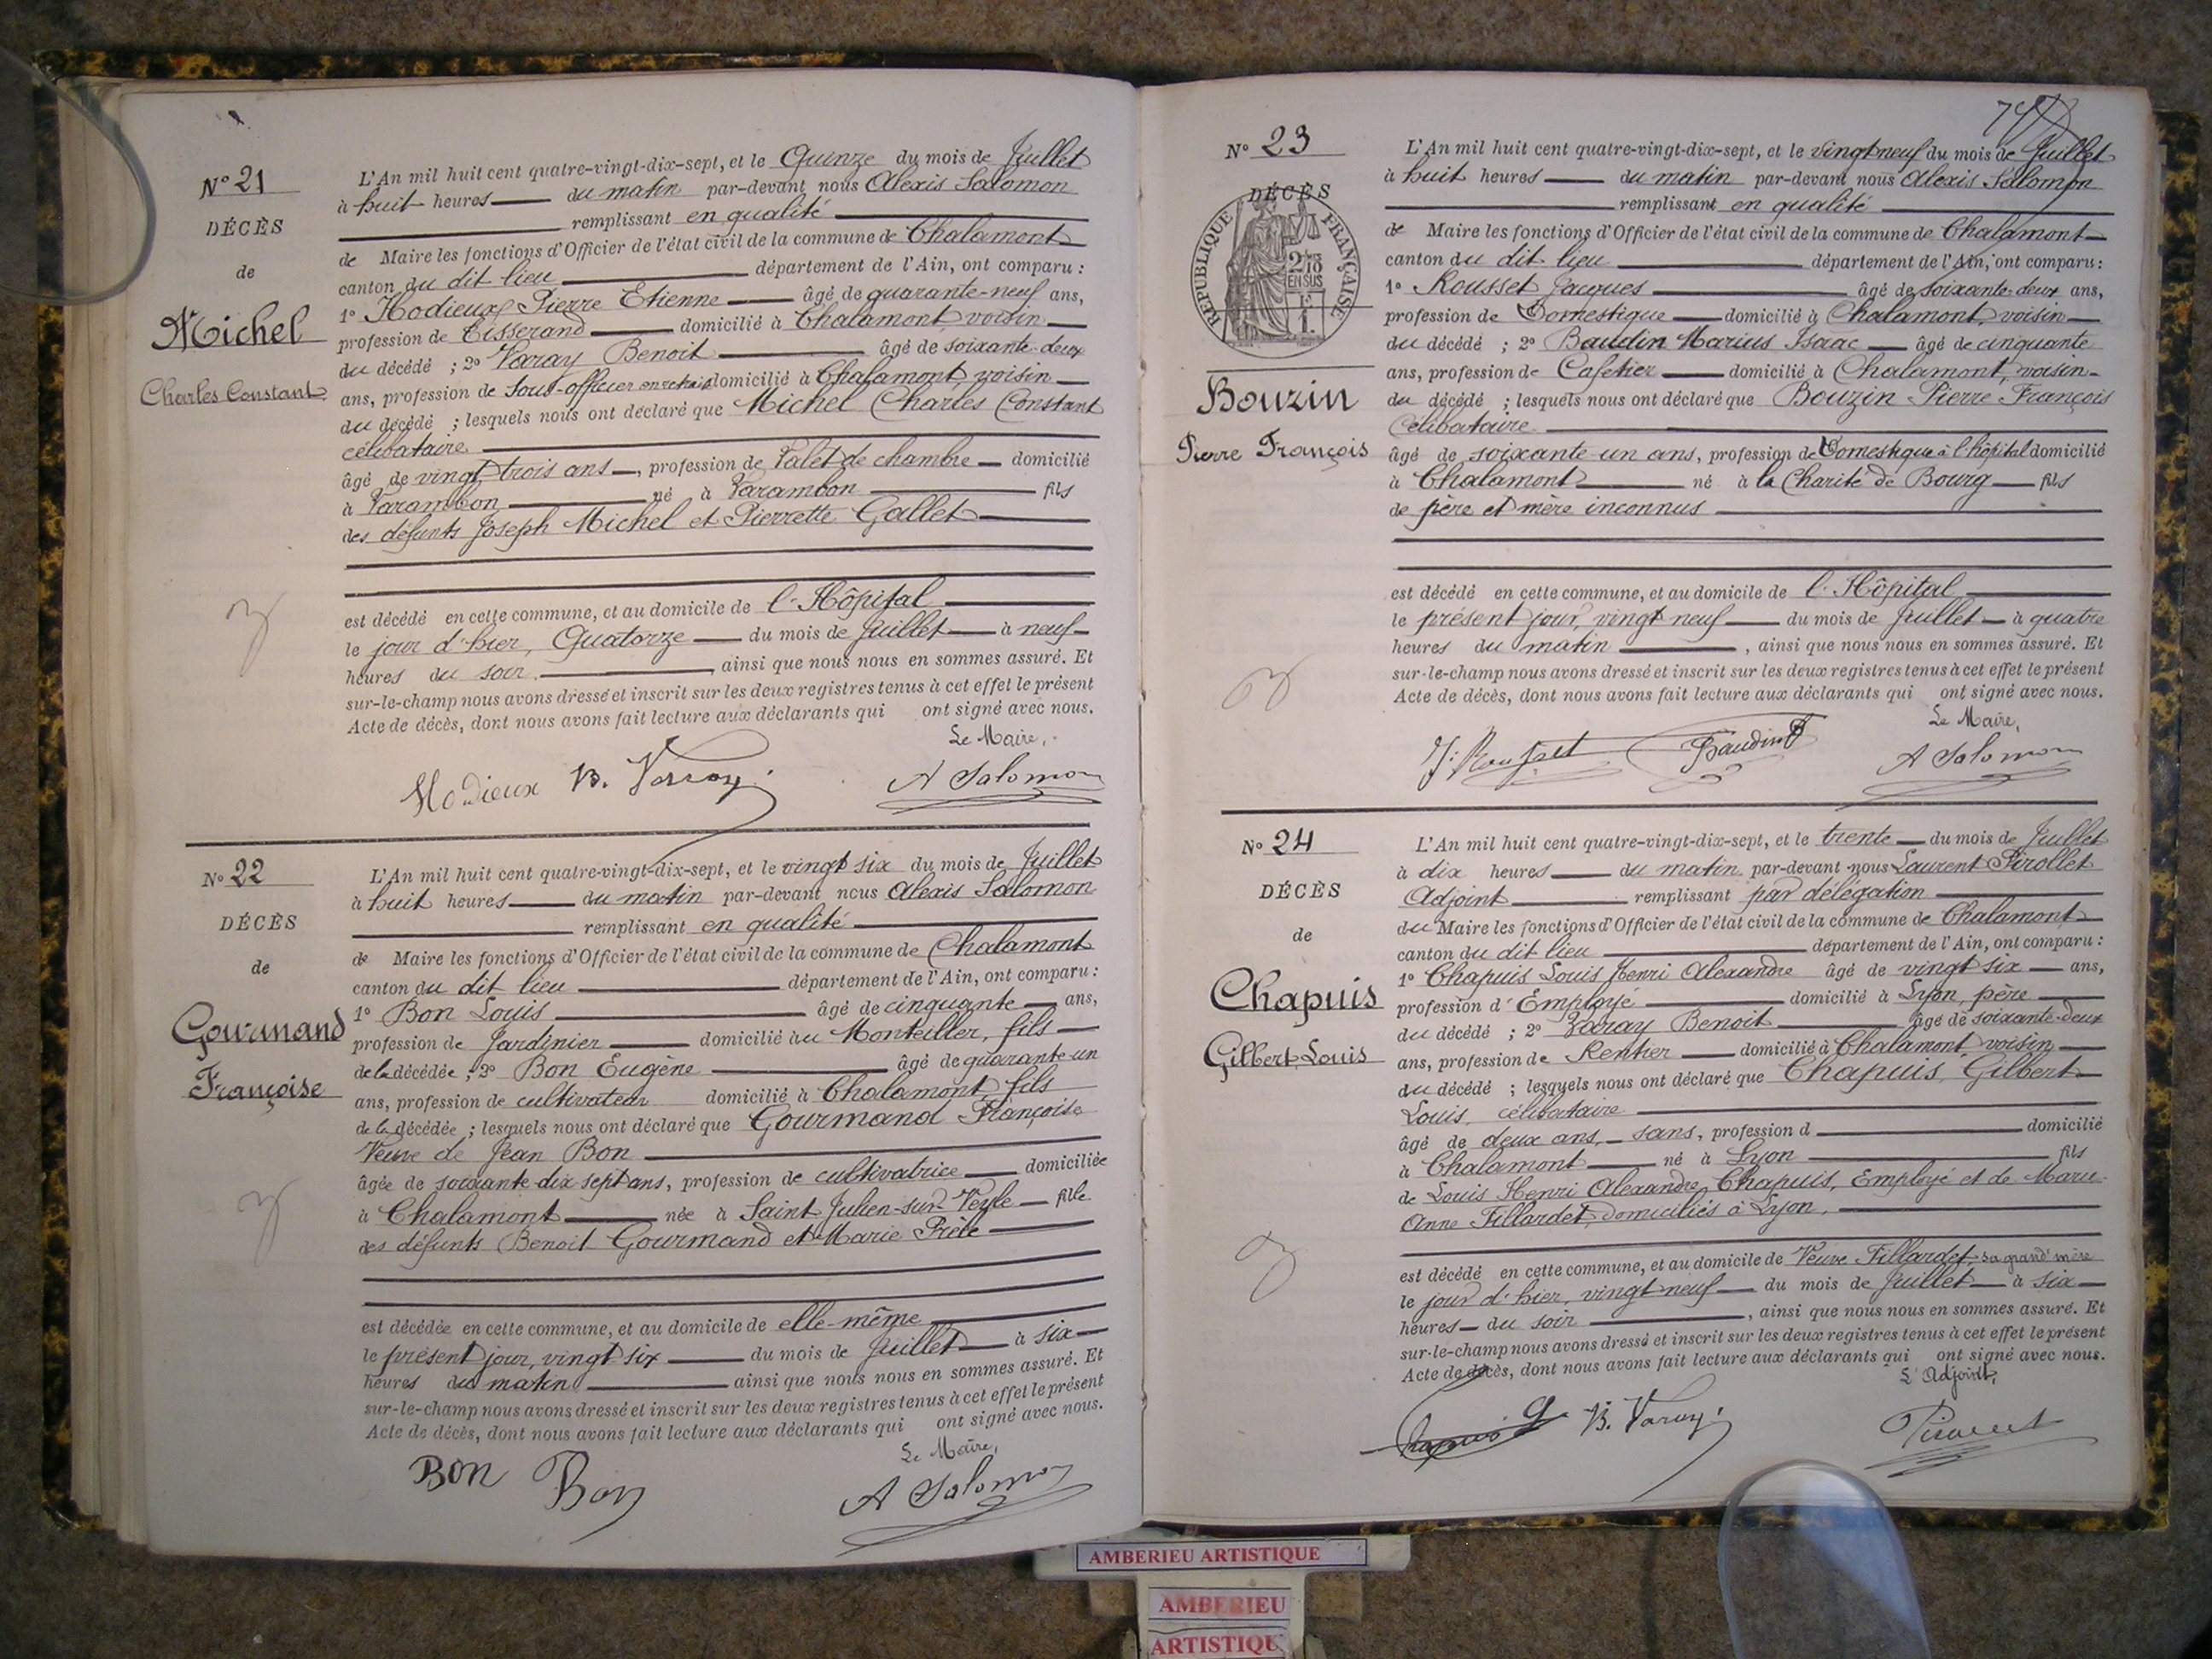 N° 21
DÉCÈS
de
Michel
Charles Constant
L'An mil huit cent quatre-vingt-dix-sept, et le Quinze du mois de Juillet
à huit heures du matin par-devant nous Alexis Salomon
remplissant en qualité
de Maire les fonctions d'Officier de l'état civil de la commune de Chalamont
canton du dit lieu département de l'Ain, ont comparu :
1° Hodieux Pierre Etienne âgé de quarante-neuf ans,
profession de Tisserand domicilié à Chalamont, voisin
du décédé ; 2° Varay Benoit âgé de soixante-deux
ans, profession de Sous-officier en retraite domicilié à Chalamont, voisin
du décédé ; lesquels nous ont déclaré que Michel Charles Constant
célibataire
âgé de vingt-trois ans, profession de Valet de chambre domicilié
à Varambon né à Varambon fils
des défunts Joseph Michel et Pierrette Gallet
est décédé en cette commune, et au domicile de l'Hôpital
le jour d'hier, Quatorze du mois de Juillet à neuf
heures du soir, ainsi que nous nous en sommes assuré. Et
sur-le-champ nous avons dressé et inscrit sur les deux registres tenus à cet effet le présent
Acte de décès, dont nous avons fait lecture aux déclarants qui ont signé avec nous.
Le Maire,
Hodieux B. Varay A Salomon
N° 22
DÉCÈS
de
Gourmand
Françoise
L'An mil huit cent quatre-vingt-dix-sept, et le vingt six du mois de Juillet
à huit heures du matin par-devant nous Alexis Salomon
remplissant en qualité
de Maire les fonctions d'Officier de l'état civil de la commune de Chalamont
canton du dit lieu département de l'Ain, ont comparu :
1° Bon Louis âgé de cinquante ans,
profession de Jardinier domicilié au Monteiller, fils
de la décédée ; 2° Bon Eugène âgé de quarante-un
ans, profession de cultivateur domicilié à Chalamont, fils
de la décédée ; lesquels nous ont déclaré que Gourmand Françoise
Veuve de Jean Bon
âgée de soixante-dix sept ans, profession de cultivatrice domiciliée
à Chalamont née à Saint Julien-sur-Veyle fille
des défunts Benoit Gourmand et Marie
est décédée en cette commune, et au domicile de elle-même
le présent jour, vingt six du mois de Juillet à six
heures du matin ainsi que nous nous en sommes assuré. Et
sur-le-champ nous avons dressé et inscrit sur les deux registres tenus à cet effet le présent
Acte de décès, dont nous avons fait lecture aux déclarants qui ont signé avec nous.
Le Maire,
Bon Bon A Salomon
N° 23
DÉCÈS
RÉPUBLIQUE FRANÇAISE
2/10 EN SUS
Bouzin
Pierre François
L'An mil huit cent quatre-vingt-dix-sept, et le vingt neuf du mois de Juillet
à huit heures du matin par-devant nous Alexis Salomon
remplissant en qualité
de Maire les fonctions d'Officier de l'état civil de la commune de Chalamont
canton du dit lieu département de l'Ain, ont comparu :
1° Rousset Jacques âgé de soixante-deux ans,
profession de Domestique domicilié à Chalamont, voisin
du décédé ; 2° Baudin Marius Isaac âgé de cinquante
ans, profession de Cafetier domicilié à Chalamont, voisin
du décédé ; lesquels nous ont déclaré que Bouzin Pierre François
Célibataire
âgé de soixante-un ans, profession de Domestique à l'hôpital domicilié
à Chalamont né à la Charité de Bourg fils
de père et mère inconnus
est décédé en cette commune, et au domicile de l'Hôpital
le présent jour, vingt neuf du mois de Juillet à quatre
heures du matin, ainsi que nous nous en sommes assuré. Et
sur-le-champ nous avons dressé et inscrit sur les deux registres tenus à cet effet le présent
Acte de décès, dont nous avons fait lecture aux déclarants qui ont signé avec nous.
Le Maire,
J. Rousset Baudin A Salomon
N° 24
DÉCÈS
de
Chapuis
Gilbert Louis
L'An mil huit cent quatre-vingt-dix-sept, et le trente du mois de Juillet
à dix heures du matin par-devant nous Laurent Pirollet
Adjoint remplissant par délégation
du Maire les fonctions d'Officier de l'état civil de la commune de Chalamont
canton du dit lieu département de l'Ain, ont comparu :
1° Chapuis Louis Henri Alexandre âgé de vingt six ans,
profession d'Employé domicilié à Lyon, père
du décédé ; 2° Varay Benoit âgé de soixante-deux
ans, profession de Rentier domicilié à Chalamont, voisin
du décédé ; lesquels nous ont déclaré que Chapuis, Gilbert
Louis, célibataire
âgé de deux ans, sans, profession d domicilié
à Chalamont né à Lyon fils
de Louis Henri Alexandre Chapuis, Employé et de Marie
Anne Tillardet, domiciliés à Lyon,
est décédé en cette commune, et au domicile de Veuve Tillardet, sa grand'mère
le jour d'hier, vingt neuf du mois de Juillet à six
heures du soir, ainsi que nous nous en sommes assuré. Et
sur-le-champ nous avons dressé et inscrit sur les deux registres tenus à cet effet le présent
Acte de décès, dont nous avons fait lecture aux déclarants qui ont signé avec nous.
L'Adjoint,
Chapuis B. Varay Pirollet
AMBERIEU ARTISTIQUE
AMBERIEU
ARTISTIQU